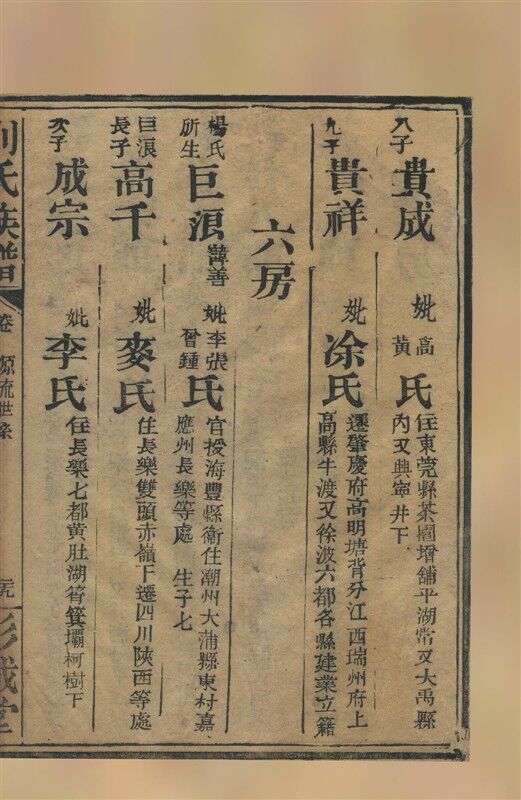 八子 貴成 妣高黃氏 住東莞縣茶園增舖平湖常又大禹縣
內又興寧井下
九子 貴祥 妣凃氏 遷肇慶府高明塘背分江西瑞州府上
高縣牛渡又徐波六都各縣建業立籍
六房
楊氏所生 巨浪 諱善 妣李張曾鍾氏 官授海豐縣衛住潮州大蒲縣東村嘉
應州長樂等處 生子七
巨浪長子 高千 妣麥氏 住長樂雙頭赤嶺下遷四川陝西等處
次子 成宗 妣李氏 住長樂七都黃肚湖筲箕壩柯樹下
劉氏族譜 卷 源流世系